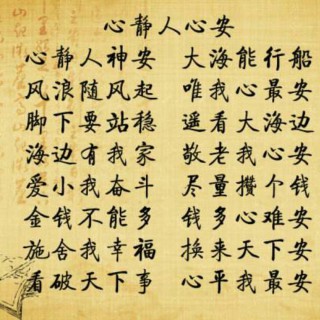 心静人心安
心静人神安 大海能行船
风浪随风起 唯我心最安
脚下要站稳 遥看大海边
海边有我家 敬老我心安
爱小我奋斗 尽量攒个钱
金钱不能多 钱多心难安
施舍我幸福 换来天下安
看破天下事 心平我最安